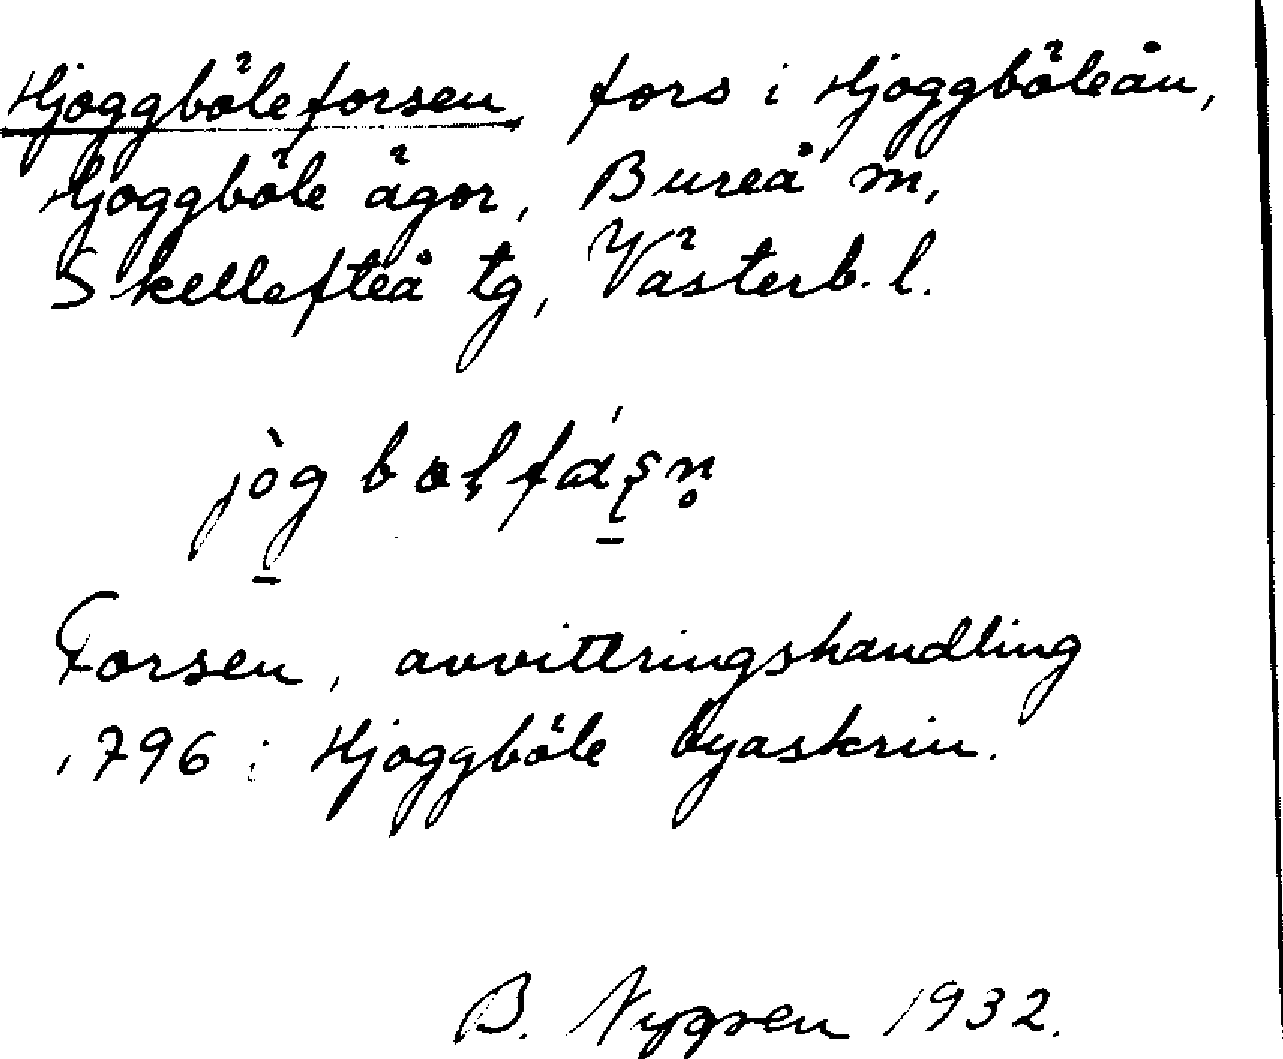 Hjoggböleforsen, fors i Hjoggböleån,
Hjoggböle ägor, Bureå m,
Skellefteå tg, Västerb. l.
Forsen, avvittringshandling
1796 i Hjoggböle byaskrin.
B. Nygren 1932.